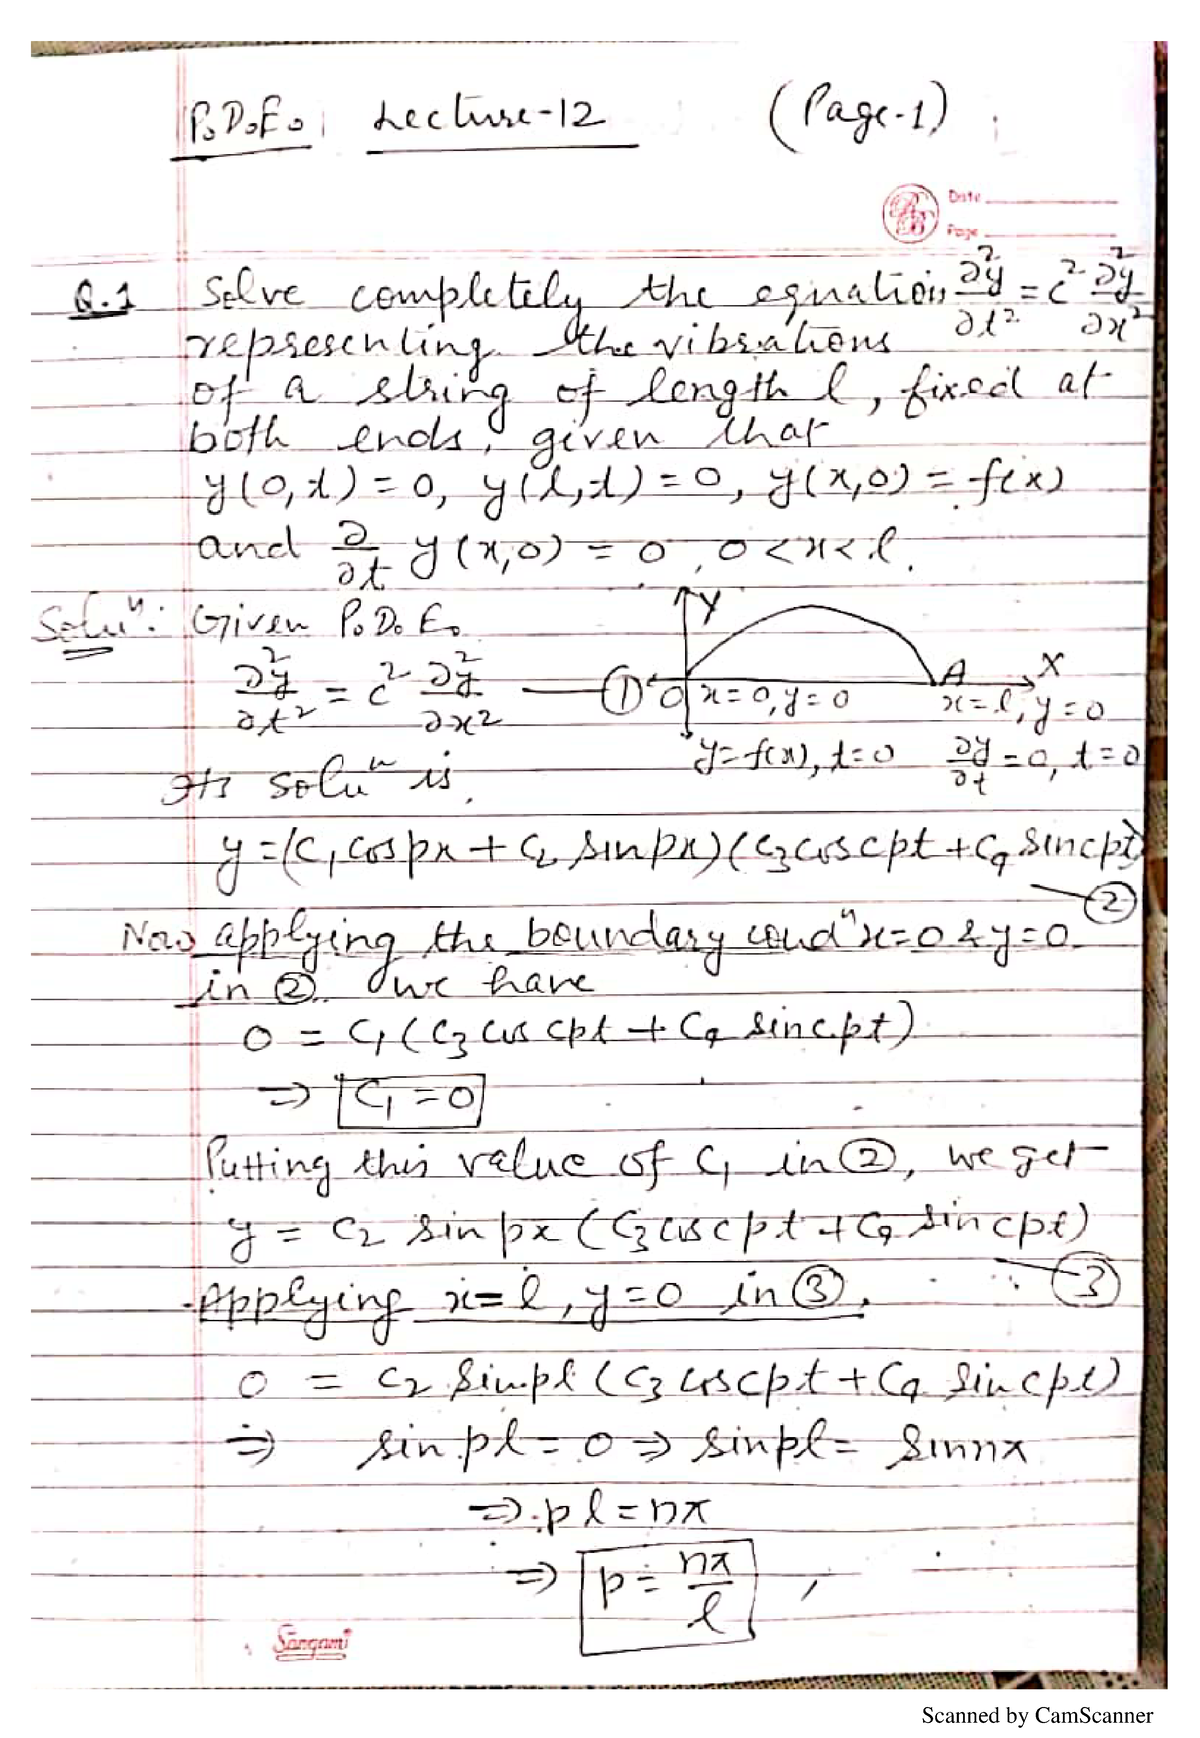 P.D.E. Lecture-12 (Page-1)
Date
Page
Q.1 Solve completely the equation ∂²y/∂t² = c² ∂²y/∂x²
representing the vibrations
of a string of length l, fixed at
both ends, given that
y(0,t) = 0, y(l,t) = 0, y(x,0) = f(x)
and ∂/∂t y(x,0) = 0, 0 < x < l.
Soluⁿ: Given P.D.E.
∂²y/∂t² = c² ∂²y/∂x² — ①
Y
O x=0, y=0
A X
x=l, y=0
y=f(x), t=0 ∂y/∂t = 0, t=0
Its soluⁿ is,
y = (C₁ cospx + C₂ sinpx) (C₃ cos cpt + C₄ sin cpt)
— ②
Now applying the boundary condⁿ x=0 & y=0
in ②. we have
0 = C₁ (C₃ cos cpt + C₄ sin cpt)
⇒ C₁ = 0
Putting this value of C₁ in ②, we get
y = C₂ sin px (C₃ cos cpt + C₄ sin cpt)
— ③
Applying x=l, y=0 in ③,
0 = C₂ sinpl (C₃ cos cpt + C₄ sin cpt)
⇒ sin pl = 0 ⇒ sinpl = sinnπ
⇒ pl = nπ
⇒ p = nπ/l
Sangam
Scanned by CamScanner